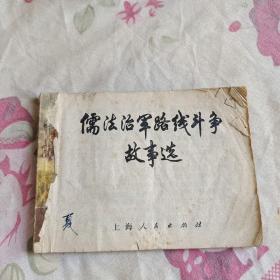 儒法治军路线斗争
故事选
夏
上海人民出版社